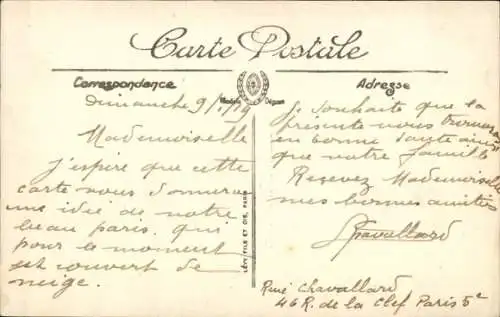 Carte Postale
Correspondance
Adresse
Modèle Déposé
Dimanche 9/1/29
Mademoiselle
J'espire que cette
carte vous donnera
une idée de notre
beau paris. qui
pour le moment
est couvert de
neige.
LÉVY FILS ET CIE, PARIS
Je souhaite que la
présente vous trouvera
en bonne santé ainsi
que votre famille
Recevez Mademoiselle
mes bonnes amitiés
Chavallard
René Chavallard
46 R. de la Clef Paris 5e